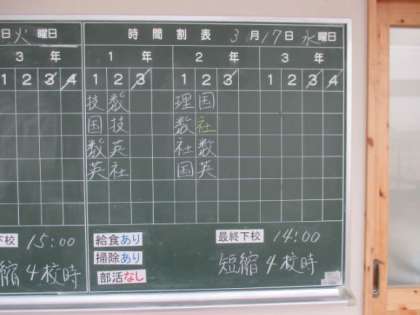 日火曜日
時間割表 3月17日水曜日
3年 1年 2年 3年
1 2 3 4 1 2 3 4 1 2 3 4 1 2 3 4
技 数 理 国
国 技 数 社
数 英 社 数
英 社 国 英
下校 15:00 給食あり 最終下校 14:00
掃除あり
縮4校時 部活なし 短縮4校時